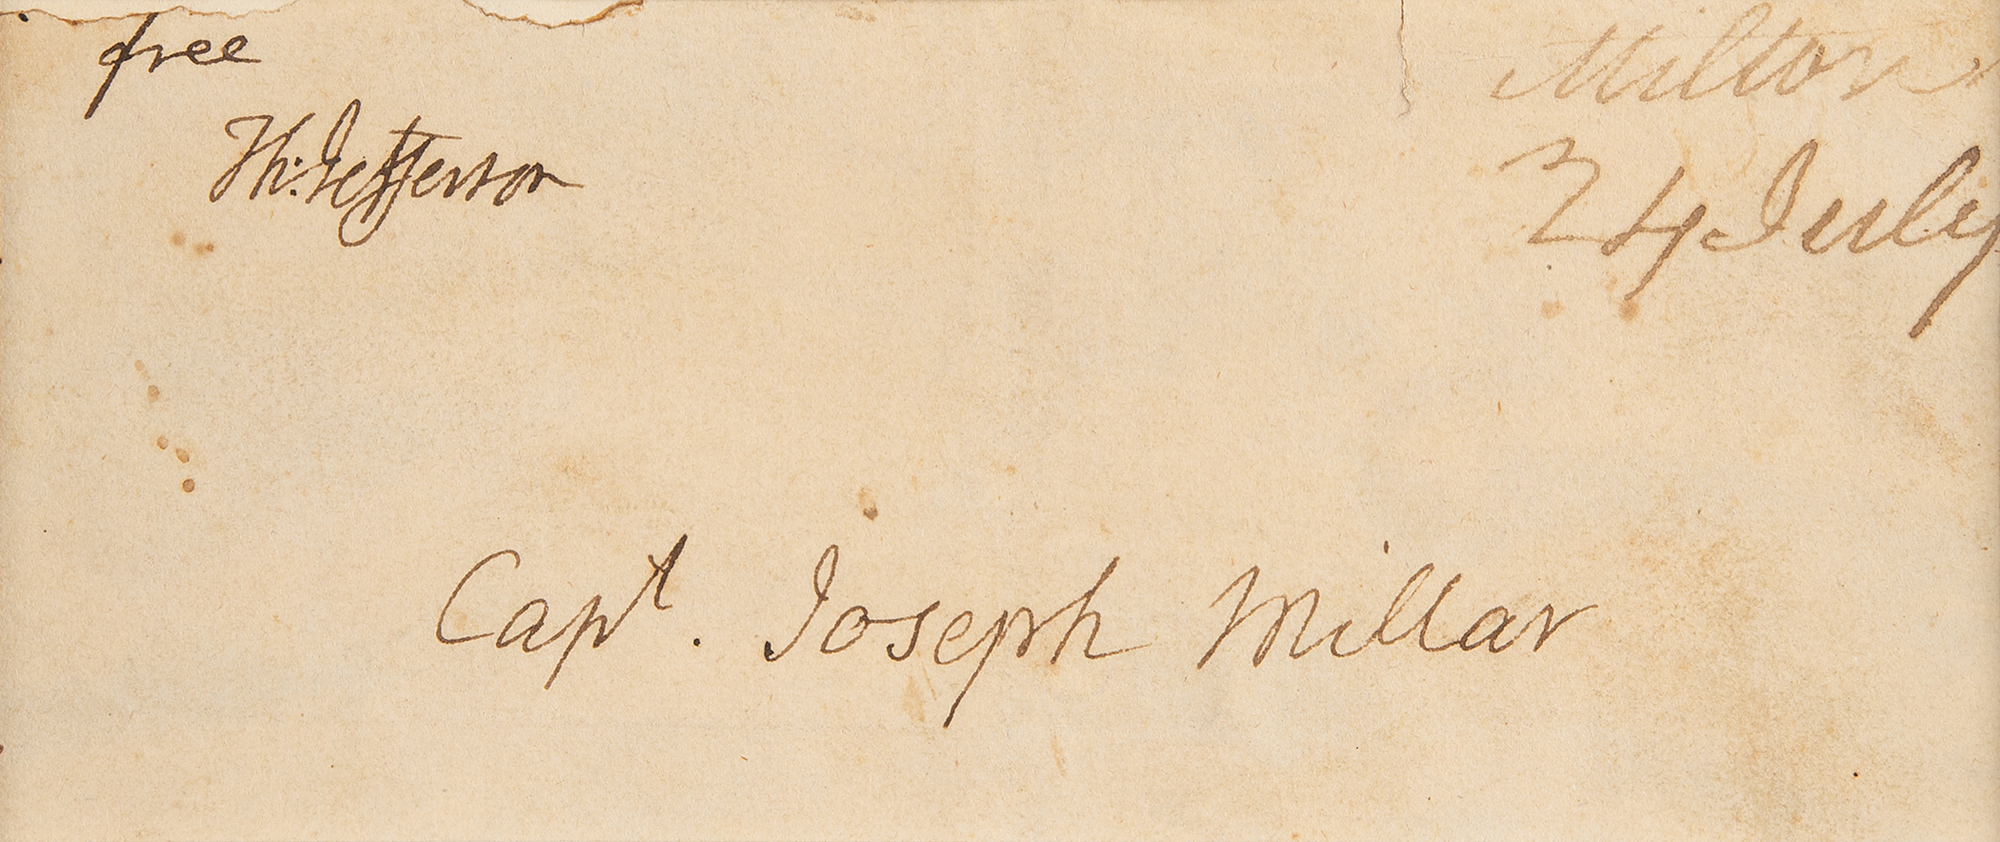 free
Th: Jefferson
Milton
24 July
Capt. Joseph Millar